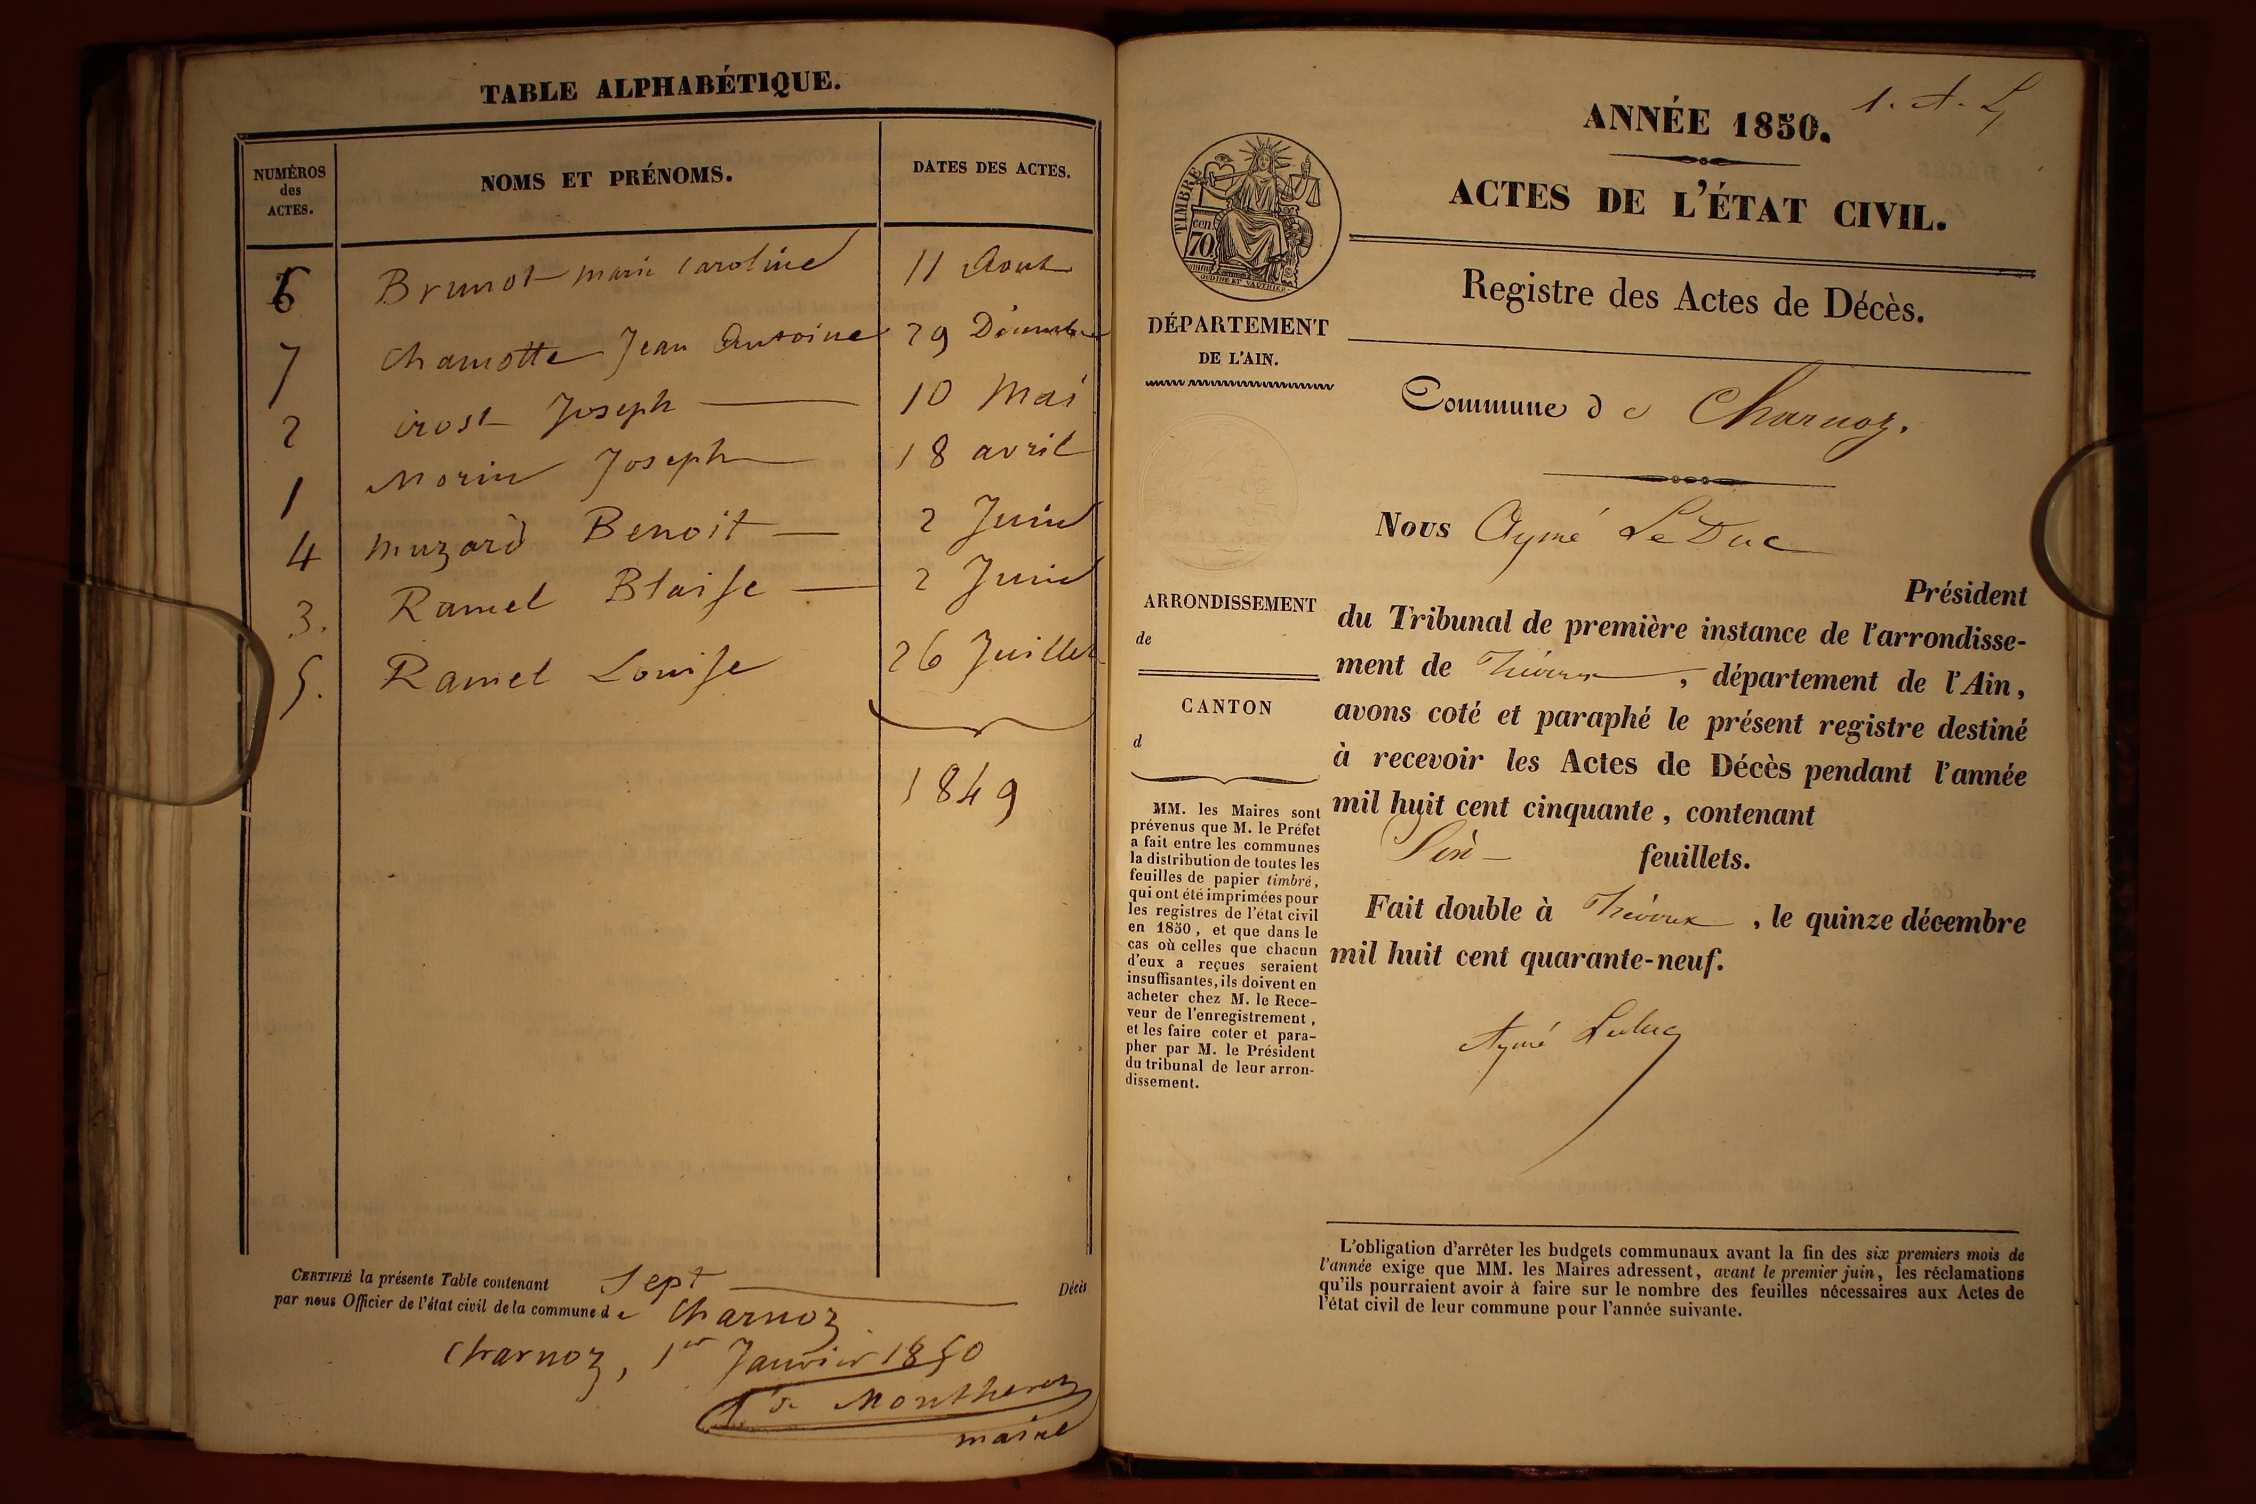 TABLE ALPHABÉTIQUE.
NUMÉROS des ACTES.
NOMS ET PRÉNOMS.
DATES DES ACTES.
6 Brunot marie Caroline 11 Aout
7 Chamotte Jean Antoine 29 Décembre
2 Crost Joseph 10 Mai
1 Morin Joseph 18 avril
4 Muzard Benoit 2 Juin
3. Ramel Blaise 2 Juin
5. Ramel Louise 26 Juillet
1849
CERTIFIÉ la présente Table contenant Sept Décès
par nous Officier de l'état civil de la commune de Charnoz
Charnoz, 1er Janvier 1850
maire
1. A. L
ANNÉE 1850.
ACTES DE L'ÉTAT CIVIL.
TIMBRE
70 cen.
Registre des Actes de Décès.
DÉPARTEMENT
DE L'AIN.
Commune de Charnoz.
Nous Aymé LeDuc
Président
du Tribunal de première instance de l'arrondisse-
ment de Trévoux, département de l'Ain,
avons coté et paraphé le présent registre destiné
à recevoir les Actes de Décès pendant l'année
mil huit cent cinquante, contenant
feuillets.
Fait double à Trévoux, le quinze décembre
mil huit cent quarante-neuf.
Aymé Leduc
ARRONDISSEMENT
de
CANTON
d
MM. les Maires sont
prévenus que M. le Préfet
a fait entre les communes
la distribution de toutes les
feuilles de papier timbré,
qui ont été imprimées pour
les registres de l'état civil
en 1850, et que dans le
cas où celles que chacun
d'eux a reçues seraient
insuffisantes, ils doivent en
acheter chez M. le Rece-
veur de l'enregistrement,
et les faire coter et para-
pher par M. le Président
du tribunal de leur arron-
dissement.
L'obligation d'arrêter les budgets communaux avant la fin des six premiers mois de
l'année exige que MM. les Maires adressent, avant le premier juin, les réclamations
qu'ils pourraient avoir à faire sur le nombre des feuilles nécessaires aux Actes de
l'état civil de leur commune pour l'année suivante.